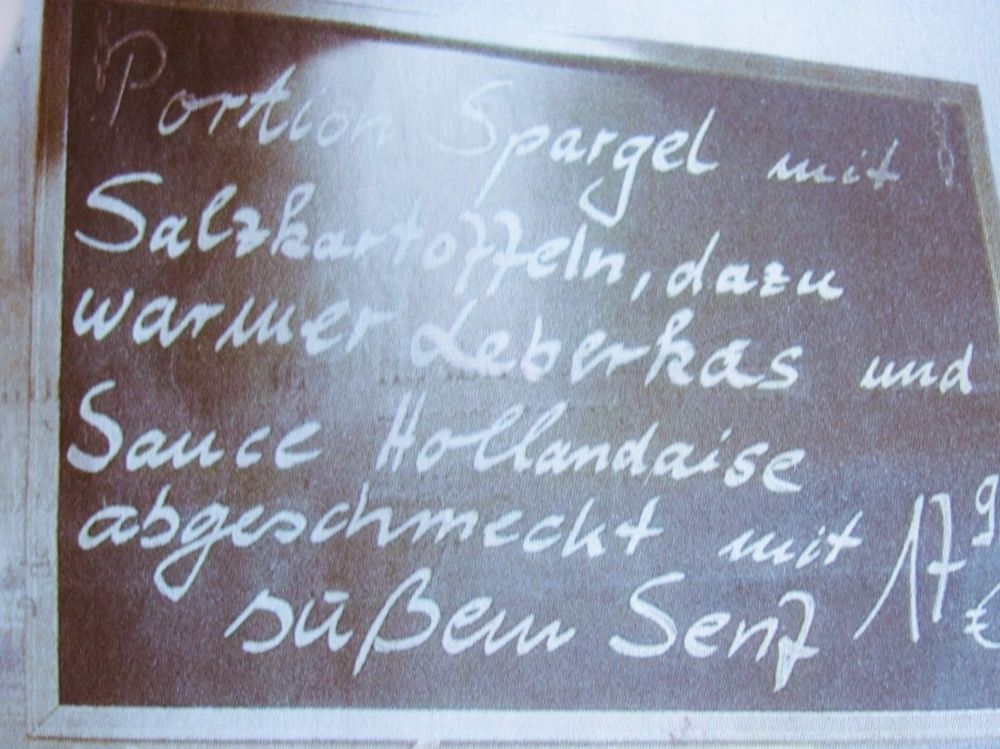 Portion Spargel mit
Salzkartoffeln, dazu
warmer Leberkas und
Sauce Hollandaise
abgeschmeckt mit 17 9
süßem Senf €